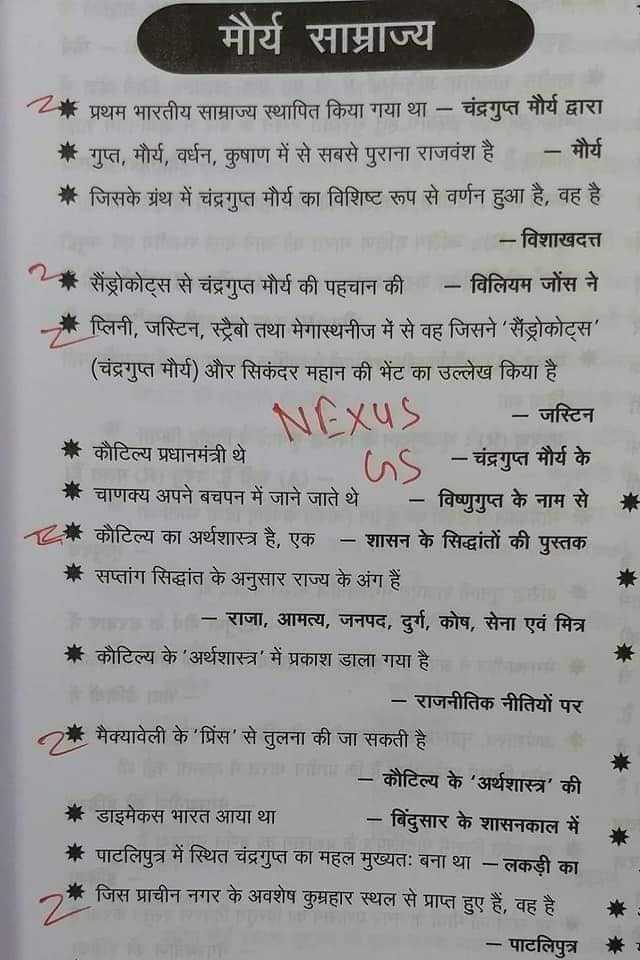 मौर्य साम्राज्य
✷ प्रथम भारतीय साम्राज्य स्थापित किया गया था — चंद्रगुप्त मौर्य द्वारा
✷ गुप्त, मौर्य, वर्धन, कुषाण में से सबसे पुराना राजवंश है — मौर्य
✷ जिसके ग्रंथ में चंद्रगुप्त मौर्य का विशिष्ट रूप से वर्णन हुआ है, वह है
— विशाखदत्त
✷ सैंड्रोकोट्स से चंद्रगुप्त मौर्य की पहचान की — विलियम जोंस ने
✷ प्लिनी, जस्टिन, स्ट्रैबो तथा मेगास्थनीज में से वह जिसने 'सैंड्रोकोट्स'
(चंद्रगुप्त मौर्य) और सिकंदर महान की भेंट का उल्लेख किया है
— जस्टिन
NEXUS
GS
✷ कौटिल्य प्रधानमंत्री थे — चंद्रगुप्त मौर्य के
✷ चाणक्य अपने बचपन में जाने जाते थे — विष्णुगुप्त के नाम से
✷ कौटिल्य का अर्थशास्त्र है, एक — शासन के सिद्धांतों की पुस्तक
✷ सप्तांग सिद्धांत के अनुसार राज्य के अंग हैं
— राजा, आमत्य, जनपद, दुर्ग, कोष, सेना एवं मित्र
✷ कौटिल्य के 'अर्थशास्त्र' में प्रकाश डाला गया है
— राजनीतिक नीतियों पर
✷ मैक्यावेली के 'प्रिंस' से तुलना की जा सकती है
— कौटिल्य के 'अर्थशास्त्र' की
✷ डाइमेकस भारत आया था — बिंदुसार के शासनकाल में
✷ पाटलिपुत्र में स्थित चंद्रगुप्त का महल मुख्यतः बना था — लकड़ी का
✷ जिस प्राचीन नगर के अवशेष कुम्रहार स्थल से प्राप्त हुए हैं, वह है
— पाटलिपुत्र